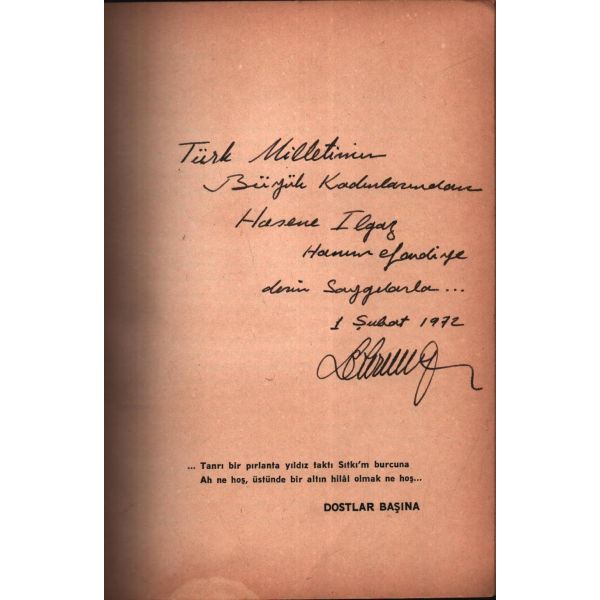 Türk Milletinin
Büyük Kadınlarından
Hasene Ilgaz
Hanımefendiye
derin Saygılarla ...
1 Şubat 1972
... Tanrı bir pırlanta yıldız taktı Sıtkı'm burcuna
Ah ne hoş, üstünde bir altın hilâl olmak ne hoş...
DOSTLAR BAŞINA